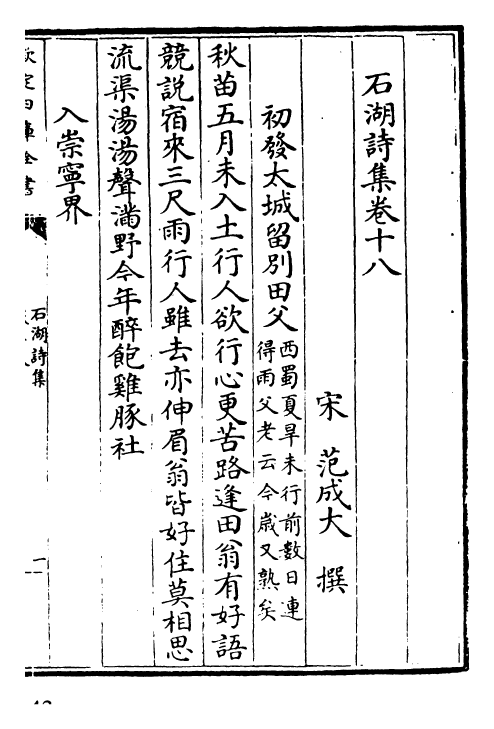 石湖詩集卷十八
宋 范成大 撰
初發太城留別田父
西蜀夏旱未行前數日連
得雨父老云今歳又熟矣
秋苗五月未入土行人欲行心更苦路逢田翁有好語
競説宿來三尺雨行人雖去亦伸眉翁皆好住莫相思
流渠湯湯聲滿野今年醉飽雞豚社
入崇寧界
石湖詩集